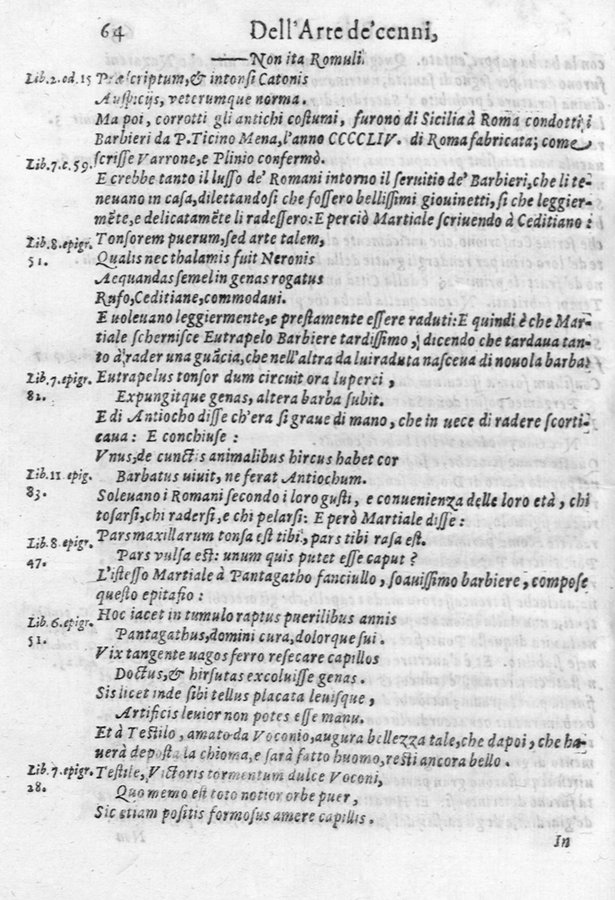 64 Dell'Arte de'cenni,
Non ita Romuli.
Lib.2.od.15 Præscriptum, & intonsi Catonis
Auspicijs, veterumque norma.
Ma poi, corrotti gli antichi costumi, furono di Sicilia à Roma condotti i
Barbieri da P.Ticino Mena, l'anno CCCCLIV. di Roma fabricata; come
Lib.7.c.59. scrisse Varrone, e Plinio confermò.
E crebbe tanto il lusso de' Romani intorno il seruitio de' Barbieri, che li te-
neuano in casa, dilettandosi che fossero bellissimi giouinetti, si che leggier-
mēte, e delicatamēte li radessero: E perciò Martiale scriuendo à Ceditiano :
Lib.8.epigr. Tonsorem puerum, sed arte talem,
51. Qualis nec thalamis fuit Neronis
Aequandas semel in genas rogatus
Rufo, Ceditiane, commodaui.
E uoleuano leggiermente, e prestamente essere raduti: E quindi è che Mar-
tiale schernisce Eutrapelo Barbiere tardissimo, dicendo che tardaua tan-
to à rader una guācia, che nell'altra da lui raduta nasceua di nouo la barba:
Lib.7.epigr. Eutrapelus tonsor dum circuit ora luperci ,
82. Expungitque genas, altera barba subit.
E di Antiocho disse ch'era si graue di mano, che in uece di radere scorti-
caua : E conchiuse :
Vnus, de cunctis animalibus hircus habet cor
Lib.11.epig. Barbatus uiuit, ne ferat Antiochum.
83. Soleuano i Romani secondo i loro gusti, e conuenienza delle loro età, chi
tosarsi, chi radersi, e chi pelarsi: E però Martiale disse :
Lib.8.epigr. Pars maxillarum tonsa est tibi, pars tibi rasa est.
47. Pars vulsa est: unum quis putet esse caput ?
L'istesso Martiale à Pantagatho fanciullo, soauissimo barbiere, compose
questo epitafio :
Lib.6.epigr. Hoc iacet in tumulo raptus puerilibus annis
51. Pantagathus, domini cura, dolorque sui .
Vix tangente uagos ferro resecare capillos
Doctus, & hirsutas excoluisse genas .
Sis licet inde sibi tellus placata leuisque ,
Artificis leuior non potes esse manu.
Et à Testilo , amato da Voconio, augura bellezza tale, che dapoi , che ha-
uerà deposta la chioma, e sarà fatto huomo, resti ancora bello .
Lib.7.epigr. Testile, Victoris tormentum dulce Voconi,
28. Quo memo est toto notior orbe puer ,
Sic etiam positis formosus amere capillis .
In